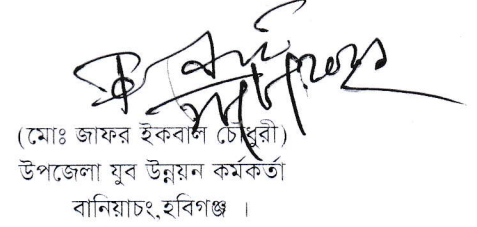 (মোঃ জাফর ইকবাল চৌধুরী)
উপজেলা যুব উন্নয়ন কর্মকর্তা
বানিয়াচং,হবিগঞ্জ ।